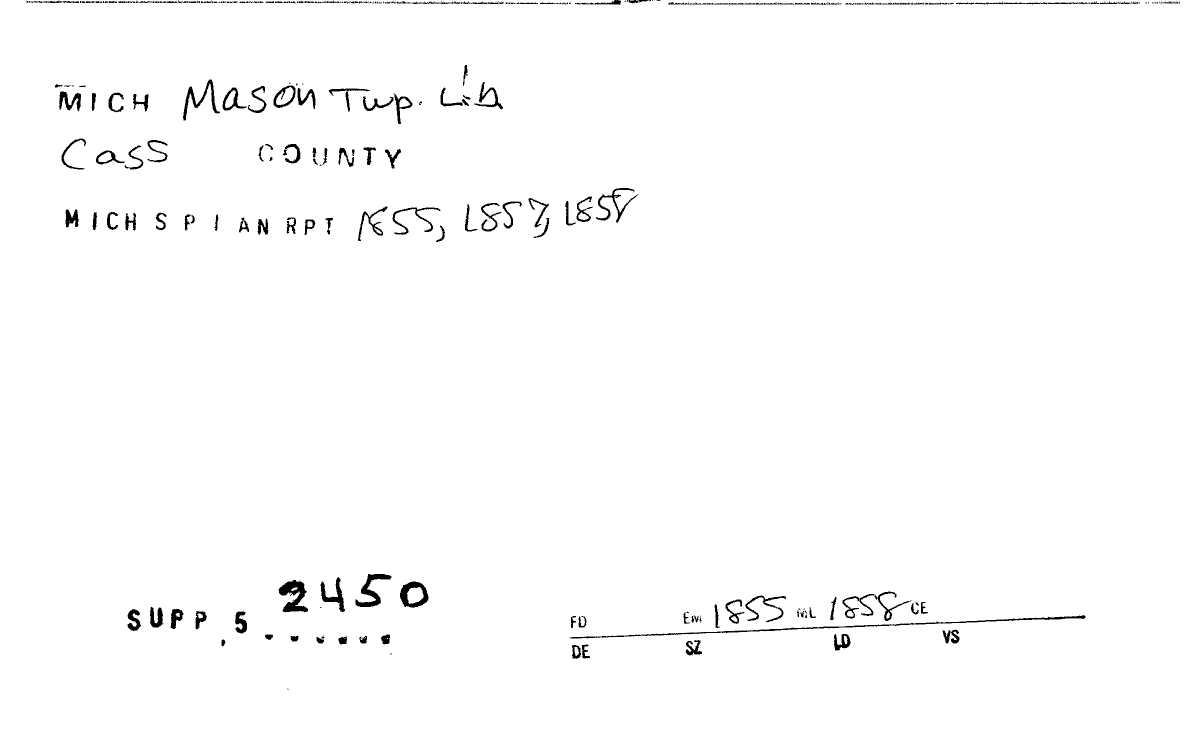 MICH Mason Twp. Lib
Cass COUNTY
MICH S P I AN RPT 1855, 1857, 1858
SUPP. 5 2450
FD EM 1855 ML 1858 CE
DE SZ LD VS